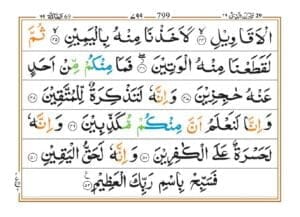 799
الْاَقَاوِيْلِ ۙ لَاَخَذْنَا مِنْهُ بِالْيَمِيْنِ ۙ ثُمَّ
لَقَطَعْنَا مِنْهُ الْوَتِيْنَ ۖ فَمَا مِنْكُمْ مِّنْ اَحَدٍ
عَنْهُ حٰجِزِيْنَ وَاِنَّهٗ لَتَذْكِرَةٌ لِّلْمُتَّقِيْنَ
وَاِنَّا لَنَعْلَمُ اَنَّ مِنْكُمْ مُّكَذِّبِيْنَ وَاِنَّهٗ
لَحَسْرَةٌ عَلَى الْكٰفِرِيْنَ وَاِنَّهٗ لَحَقُّ الْيَقِيْنِ
فَسَبِّحْ بِاسْمِ رَبِّكَ الْعَظِيْمِ